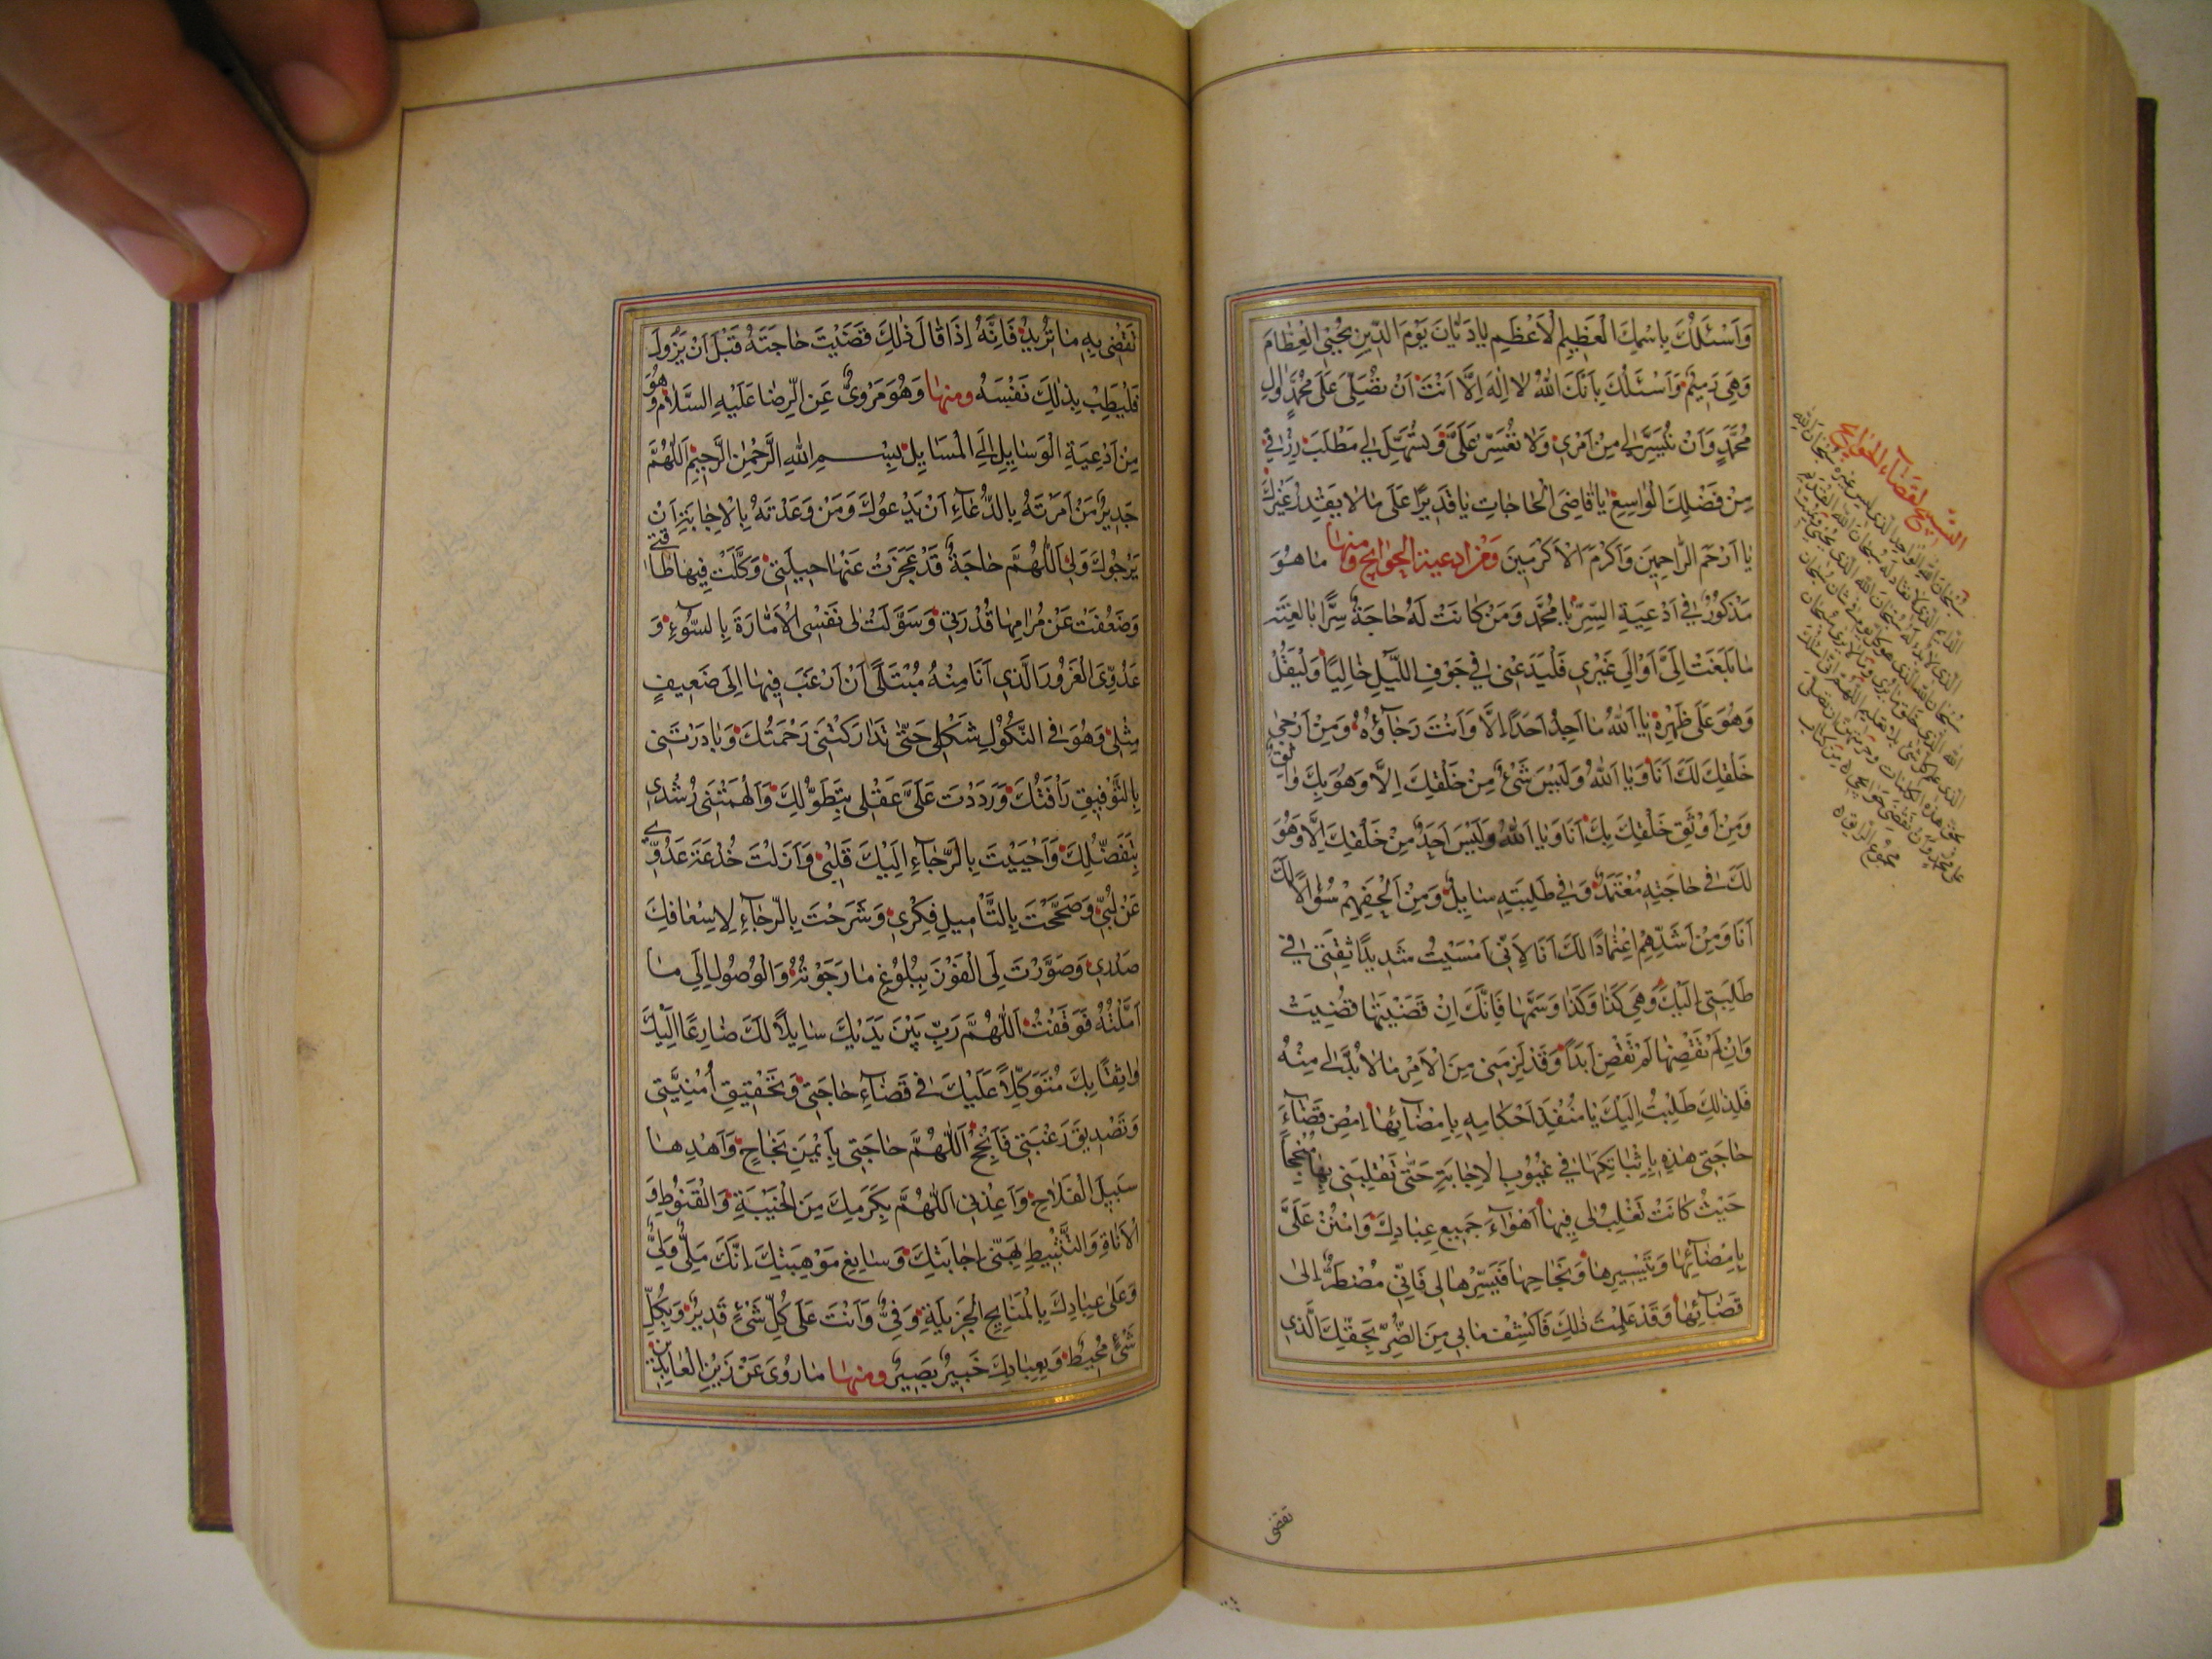 وَاَسْئَلُكَ بِاسْمِكَ الْعَظِيمِ الْاَعْظَمِ يَا دَيَّانَ يَوْمَ الدّينِ يُحْيِي الْعِظَامَ
وَهِيَ رَمِيمٌ وَاَسْئَلُكَ بِاَنَّكَ اللهُ لَا اِلٰهَ اِلَّا اَنْتَ اَنْ تُصَلِّيَ عَلَى مُحَمَّدٍ وَالِ
مُحَمَّدٍ وَاَنْ تُيَسِّرَ لِي مِنْ اَمْرِي وَلَا تُعَسِّرْ عَلَيَّ وَتُسَهِّلَ لِي مَطْلَبَ رِزْقِي
مِنْ فَضْلِكَ الْوَاسِعِ يَا قَاضِيَ الْحَاجَاتِ يَا قَدِيرًا عَلَى مَا لَا يَقْدِرُ غَيْرُكَ
يَا اَرْحَمَ الرَّاحِمِينَ وَاَكْرَمَ الْاَكْرَمِينَ وَمِنْ ادعية الحوايج ومنها مَا هُوَ
مَذْكُورٌ فِي اَدْعِيَةِ السِّرِّ يَا مُحَمَّدُ وَمَنْ كَانَتْ لَهُ حَاجَةٌ سِرًّا بَالِغَةً
مَا بَلَغَتْ اِلَيَّ اَوْ اِلَى غَيْرِي فَلْيَدْعُنِي فِي جَوْفِ اللَّيْلِ خَالِيًا وَلْيَقُلْ
وَهُوَ عَلَى ظُهْرِهِ يَا اَللهُ مَا اَجِدُ اَحَدًا اِلَّا وَاَنْتَ رَجَاؤُهُ وَمِنْ اَرْجَى
خَلْقِكَ لَكَ اَنَا وَيَا اَللهُ وَلَيْسَ شَيْءٌ مِنْ خَلْقِكَ اِلَّا وَهُوَ بِكَ وَاثِقٌ
وَمِنْ اَوْثَقِ خَلْقِكَ بِكَ اَنَا وَيَا اَللهُ وَلَيْسَ اَحَدٌ مِنْ خَلْقِكَ اِلَّا وَهُوَ
لَكَ فِي حَاجَتِهِ مُعْتَمِدٌ وَفِي طَلِبَتِهِ سَايِلٌ وَمِنْ اَلْحَفِهِمْ سُؤَالًا لَكَ
اَنَا وَمِنْ اَشَدِّهِمْ اعْتِمَادًا لَكَ اَنَا لِاَنِّي اَمْسَيْتُ شَدِيدًا ثِقَتِي فِي
طَلِبَتِي اِلَيْكَ وَهِيَ كَذَا وَكَذَا وَسَمِّهَا فَاِنَّكَ اِنْ قَضَيْتَهَا قُضِيَتْ
وَاِنْ لَمْ تَقْضِهَا لَمْ تُقْضَ اَبَدًا وَقَدْ لَزِمَنِي مِنَ الْاَمْرِ مَا لَا بُدَّ لِي مِنْهُ
فَلِذٰلِكَ طَلَبْتُ اِلَيْكَ يَا مُنْفِذَ اَحْكَامِهِ بِاِمْضَائِهَا اِمْضِ قَضَاءَ
حَاجَتِي هٰذِهِ بِاِثْبَاتِكَهَا فِي غُيُوبِ الْاِجَابَةِ حَتَّى تَقْلِبَنِي بِهَا مُنْجِحًا
حَيْثُ كَانَتْ تَغْلِبُ لِي فِيهَا اَهْوَاءَ جَمِيعِ عِبَادِكَ وَامْنُنْ عَلَيَّ
بِاِمْضَائِهَا وَتَيْسِيرِهَا وَنَجَاحِهَا فَيَسِّرْهَا لِي فَاِنِّي مُضْطَرٌّ اِلَى
قَضَائِهَا وَقَدْ عَلِمْتَ ذٰلِكَ فَاكْشِفْ مَا بِي مِنَ الضُّرِّ بِحَقِّكَ الَّذِي
تقضى
التسبيح لقضاء الحوايج
تَقْضِي بِهِ مَا تُرِيدُ فَاِنَّهُ اِذَا قَالَ ذٰلِكَ قَضَيْتُ حَاجَتَهُ قَبْلَ اَنْ يَزُولَ
فَلْيَطِبْ بِذٰلِكَ نَفْسُهُ ومنها وَهُوَ مَرْوِيٌّ عَنِ الرِّضَا عَلَيْهِ السَّلَامُ وَهُوَ
مِنْ اَدْعِيَةِ الْوَسَايِلِ اِلَى الْمَسَايِلِ بِسْمِ اللهِ الرَّحْمٰنِ الرَّحِيمِ اَللّٰهُمَّ
جَدِيرٌ مَنْ اَمَرْتَهُ بِالدُّعَاءِ اَنْ يَدْعُوَكَ وَمَنْ وَعَدْتَهُ بِالْاِجَابَةِ اَنْ
يَرْجُوَكَ وَلِيَ اللّٰهُمَّ حَاجَةٌ قَدْ عَجَزَتْ عَنْهَا حِيلَتِي وَكَلَّتْ فِيهَا طَاقَتِي
وَضَعُفَتْ عَنْ مَرَامِهَا قُدْرَتِي وَسَوَّلَتْ لِي نَفْسِي الْاَمَّارَةُ بِالسُّوءِ وَ
عَدُوِّيَ الْغَرُورُ الَّذِي اَنَا مِنْهُ مُبْتَلًى اَنْ اَرْغَبَ فِيهَا اِلَى ضَعِيفٍ
مِثْلِي وَهُوَ فِي النُّكُولِ شَكْلِي حَتَّى تَدَارَكَتْنِي رَحْمَتُكَ وَبَادَرَتْنِي
بِالتَّوْفِيقِ رَأْفَتُكَ وَرَدَدْتَ عَلَيَّ عَقْلِي بِتَطَوُّلِكَ وَاَلْهَمْتَنِي رُشْدِي
بِتَفَضُّلِكَ وَاَحْيَيْتَ بِالرَّجَاءِ اِلَيْكَ قَلْبِي وَاَزَلْتَ خُدْعَةَ عَدُوِّي
عَنْ لُبِّي وَصَحَّحْتَ بِالتَّأْمِيلِ فِكْرِي وَشَرَحْتَ بِالرَّجَاءِ لِاِسْعَافِكَ
صَدْرِي وَصَوَّرْتَ لِيَ الْفَوْزَ بِبُلُوغِ مَا رَجَوْتُهُ وَالْوُصُولِ اِلَى مَا
اَمَّلْتُهُ فَوَقَفْتُ اَللّٰهُمَّ رَبِّ بَيْنَ يَدَيْكَ سَايِلًا لَكَ ضَارِعًا اِلَيْكَ
وَاثِقًا بِكَ مُتَوَكِّلًا عَلَيْكَ فِي قَضَاءِ حَاجَتِي وَتَحْقِيقِ اُمْنِيَّتِي
وَتَصْدِيقِ رَغْبَتِي فَاَنْجِحِ اَللّٰهُمَّ حَاجَتِي بِاَيْمَنِ نَجَاحٍ وَاَهْدِهَا
سَبِيلَ الْفَلَاحِ وَاَعِذْنِي اَللّٰهُمَّ بِكَرَمِكَ مِنَ الْخَيْبَةِ وَالْقُنُوطِ وَ
الْاَنَاةِ وَالتَّثْبِيطِ بِهَنِيءِ اِجَابَتِكَ وَسَابِغِ مَوْهِبَتِكَ اِنَّكَ مَلِيٌّ وَلِيٌّ
وَعَلَى عِبَادِكَ بِالْمَنَايِحِ الْجَزِيلَةِ وَفِيٌّ وَاَنْتَ عَلَى كُلِّ شَيْءٍ قَدِيرٌ وَبِكُلِّ
شَيْءٍ مُحِيطٌ وَبِعِبَادِكَ خَبِيرٌ بَصِيرٌ ومنها مَا رُوِيَ عَنْ زَيْنِ الْعَابِدِينَ